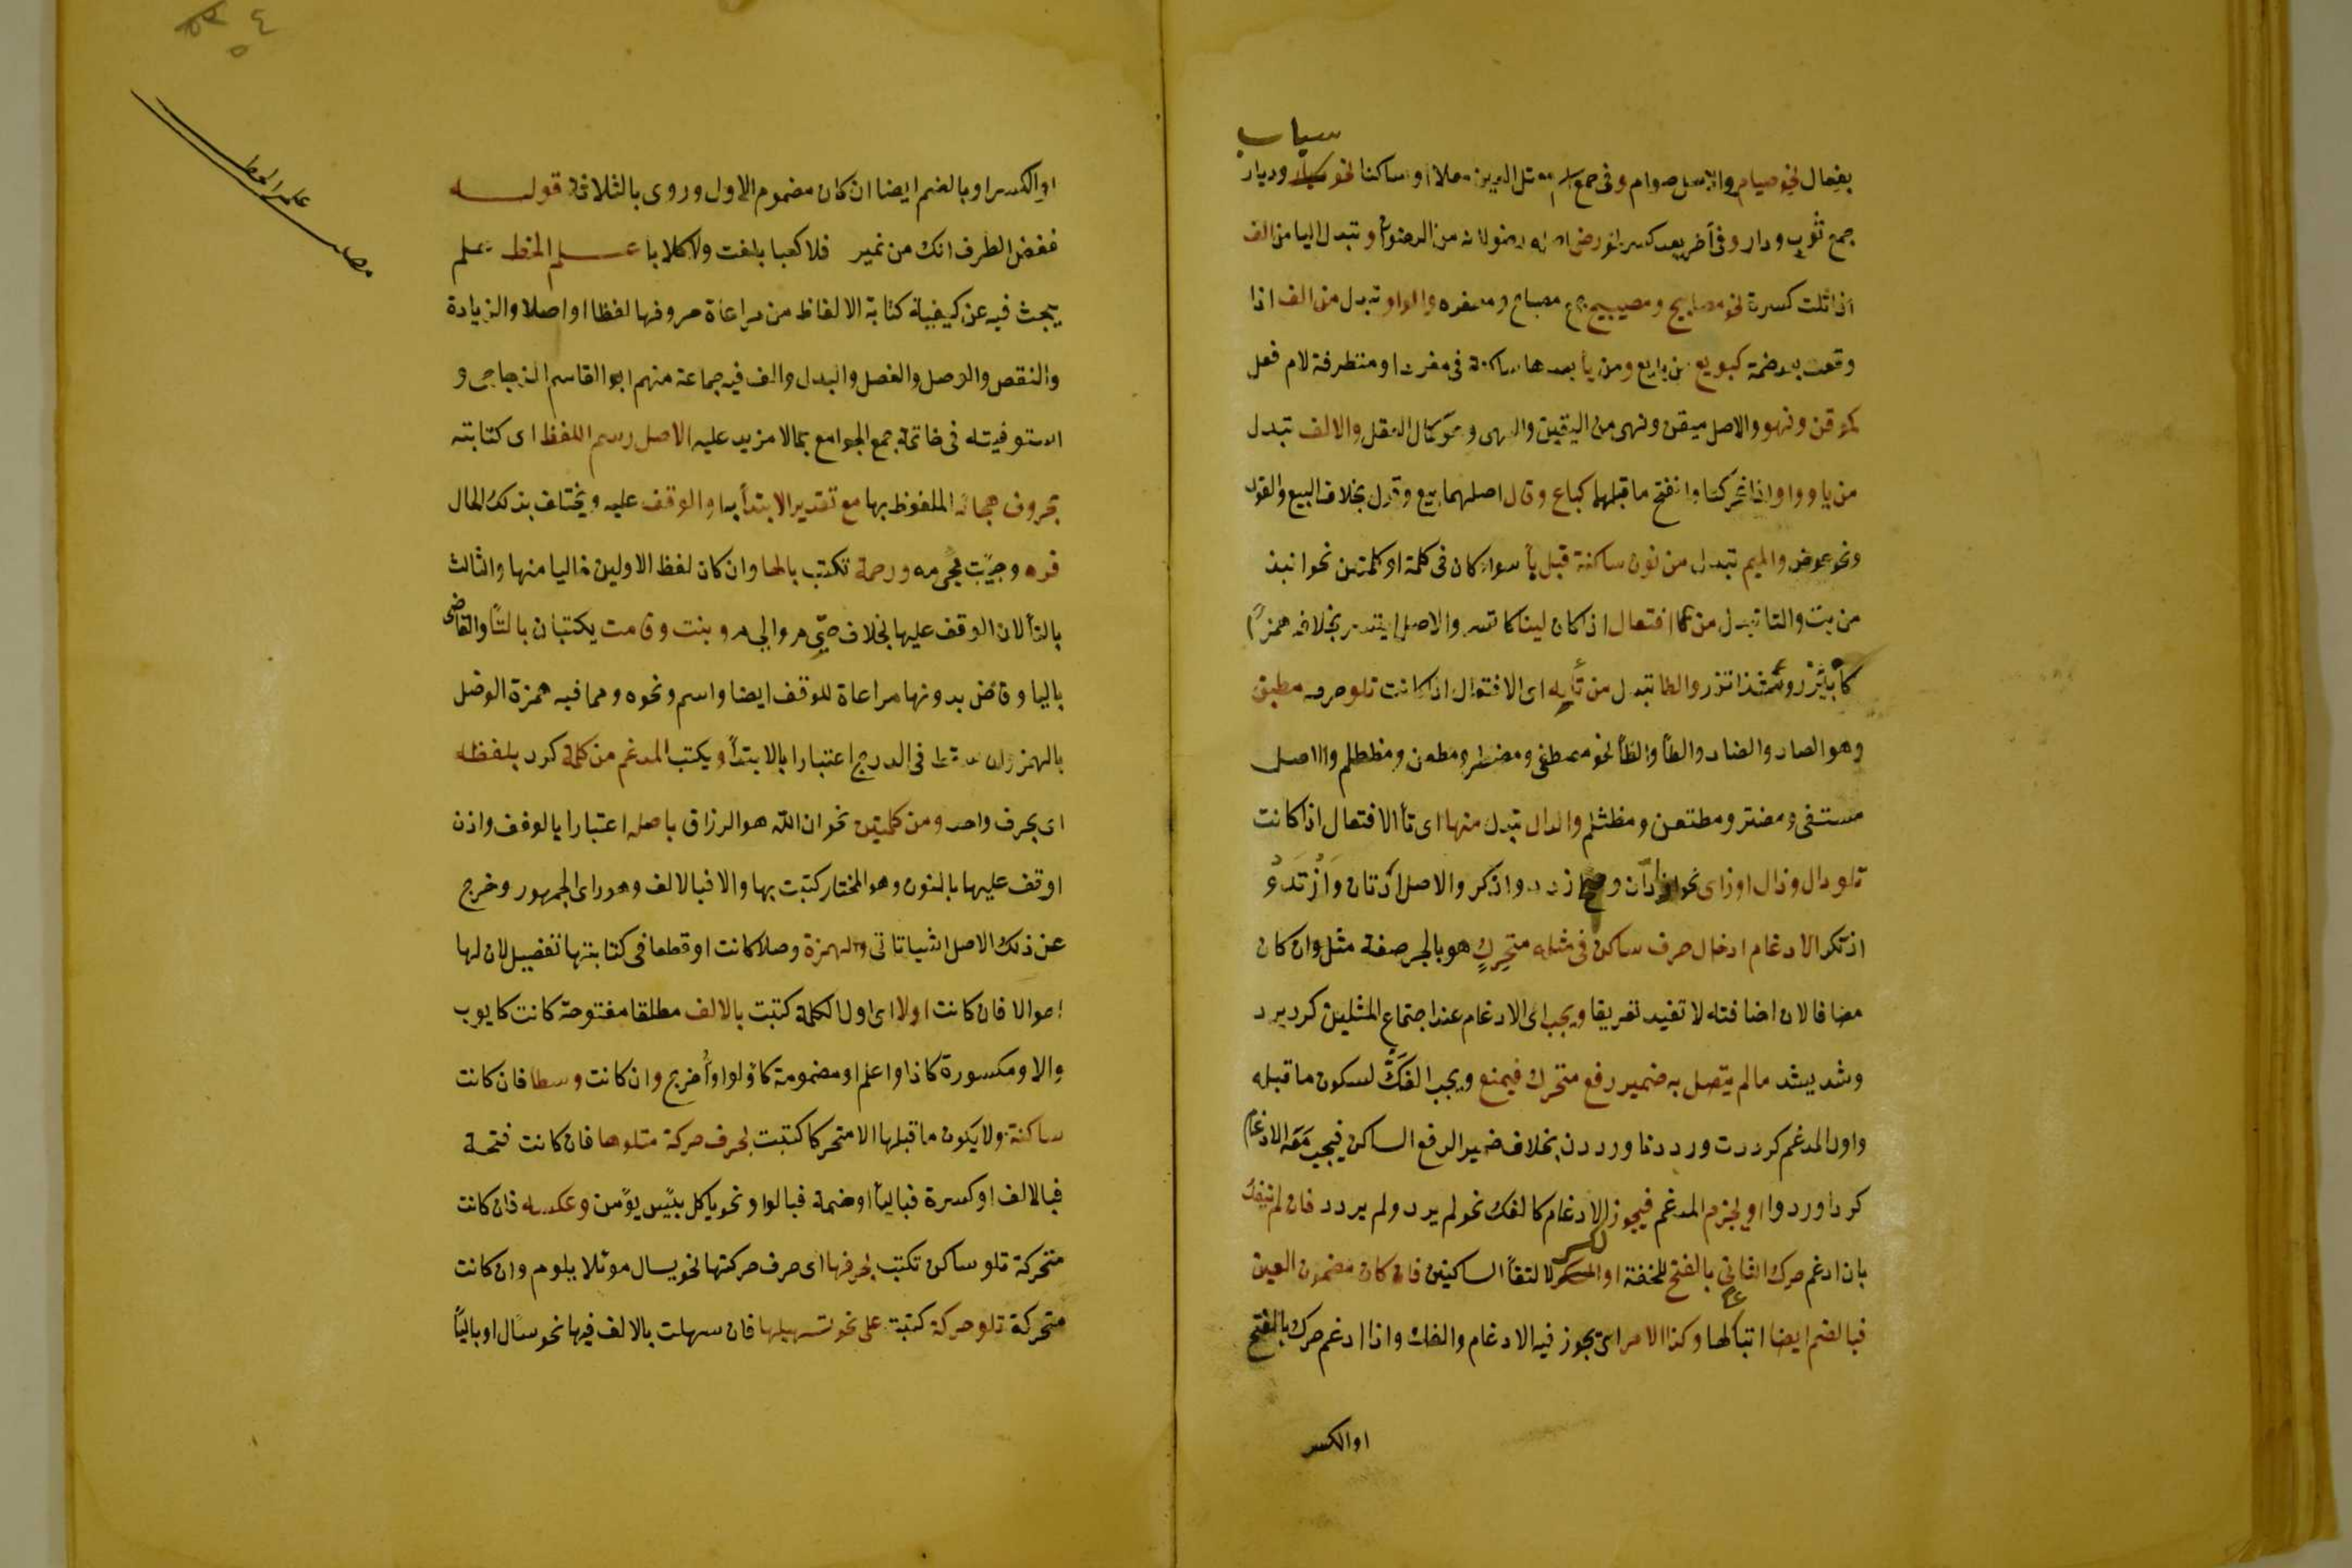 سياب
بفعال نحو صيام والاصل صوام وفى جمع اسم معتل العين معلا او ساكنا نحو وديار
جمع ثوب ودار وفى آخر بعد كسر نحو رضى اصله رضو لانه من الرضوان وتبدل اليا من الف
اذا تلت كسرة نحو مصابيح ومصيبيح جمع مصباح ومصغره والواو تبدل من الف اذا
وقعت بعد ضمة كبويع من بايع ومن يا بعدها ساكنة فى مفرد او متطرفة لام فعل
كموقن ونهو والاصل ميقن ونهى من اليقين والنهى وهو كمال العقل والالف تبدل
من يا وواو اذا تحركتا وانفتح ما قبلهما كباع وقال اصلهما بيع وقول بخلاف البيع والقول
ونحو عوض والميم تبدل من نون ساكنة قبل با سواء كان فى كلمة او كلمتين نحو انبذ
من بت والتا تبدل من فا افتعال اذا كان لينا كاتسر والاصل ايتسر بخلافه همزا
والطا تبدل من تايه اى الافتعال اذا كانت تلو حرف مطبق
وهو الصاد والضاد والطأ والظأ نحو مصطفى ومضطر ومطعن ومظطلم والاصل
مستفى ومضتر ومطتعن ومظتلم والدال تبدل منها اى تأ الافتعال اذا كانت
تلو دال وذال او زاى نحو ادان وازدد واذكر والاصل ادتان وازتد
اذتكر الادغام ادخال حرف ساكن فى مثله متحرك هو بالجر صفة مثل وان كان
مضافا لان اضافته لا تفيد تعريفا ويجب اى الادغام عند اجتماع المثلين كرد يرد
وشد يشد ما لم يتصل به ضمير رفع متحرك فيمنع ويجب الفك لسكون ما قبله
واول المدغم كرددت ورددنا ورددن بخلاف ضمير الرفع الساكن فيجب معه الادغام
كردا وردوا او يجزم المدغم فيجوز الادغام كالفك نحو لم يرد ولم يردد فان لم يفك
بان ادغم حرك الثانى بالفتح للخفة او الكسر لالتقأ الساكنين فان كان مضموم العين
فبالضم ايضا اتباعا لها وكذا الامر اى يجوز فيه الادغام والفك واذا ادغم حرك بالفتح
او الكسر
او الكسر او بالضم ايضا ان كان مضموم الاول وروى بالثلاثة قوله
فغض الطرف انك من نمير فلا كعبا بلغت ولا كلابا علم الخط علم
يبحث فيه عن كيفية كتابة الالفاظ من مراعاة حروفها لفظا او اصلا والزيادة
والنقص والوصل والفصل والبدل والف فيه جماعة منهم ابو القاسم الزجاجى و
استوفيته فى خاتمة جمع الجوامع بما لا مزيد عليه الاصل رسم اللفظ اى كتابته
بحروف هجائه الملفوظ بها مع تقدير الابتدأ به او الوقف عليه ويختلف بذلك الحال
فره وجئت مجىء مه ورحمة تكتب بالها وان كان لفظ الاولين خاليا منها والثالث
بالتأ لان الوقف عليها بخلاف حتى م والى م وبنت وقامت يكتبان بالتأ والقاضى
باليا وقاض بدونها مراعاة للوقف ايضا واسم ونحوه ومما فيه همزة الوصل
بالهمز وان سقط فى الدرج اعتبارا بالابتدأ ويكتب المدغم من كلمة كرد بلفظه
اى بحرف واحد ومن كلمتين نحو ان الله هو الرزاق باصله اعتبارا بالوقف واذن
او قف عليها بالنون وهو المختار كتبت بها والا فبالالف وهو راى الجمهور وخرج
عن ذلك الاصل اشيا تاتى والهمزة وصلا كانت او قطعا فى كتابتها تفصيل لان لها
احوالا فان كانت اولا اى اول الكلمة كتبت بالالف مطلقا مفتوحة كانت كايوب
والا ومكسورة كاذا واعلم او مضمومة كاولوا واخرج وان كانت وسطا فان كانت
ساكنة ولا يكون ما قبلها الا متحركا كتبت بحرف حركة متلوها فان كانت فتحة
فبالالف او كسرة فباليأ او ضمة فبالواو نحو ياكل بئس يؤمن وعكسه فان كانت
متحركة تلو ساكن تكتب بحرفها اى حرف حركتها نحو يسال موئلا يلوم وان كانت
متحركة تلو حركة كتبت على نحو تسهيلها فان سهلت بالالف فبها نحو سأل او باليأ
علم الخط